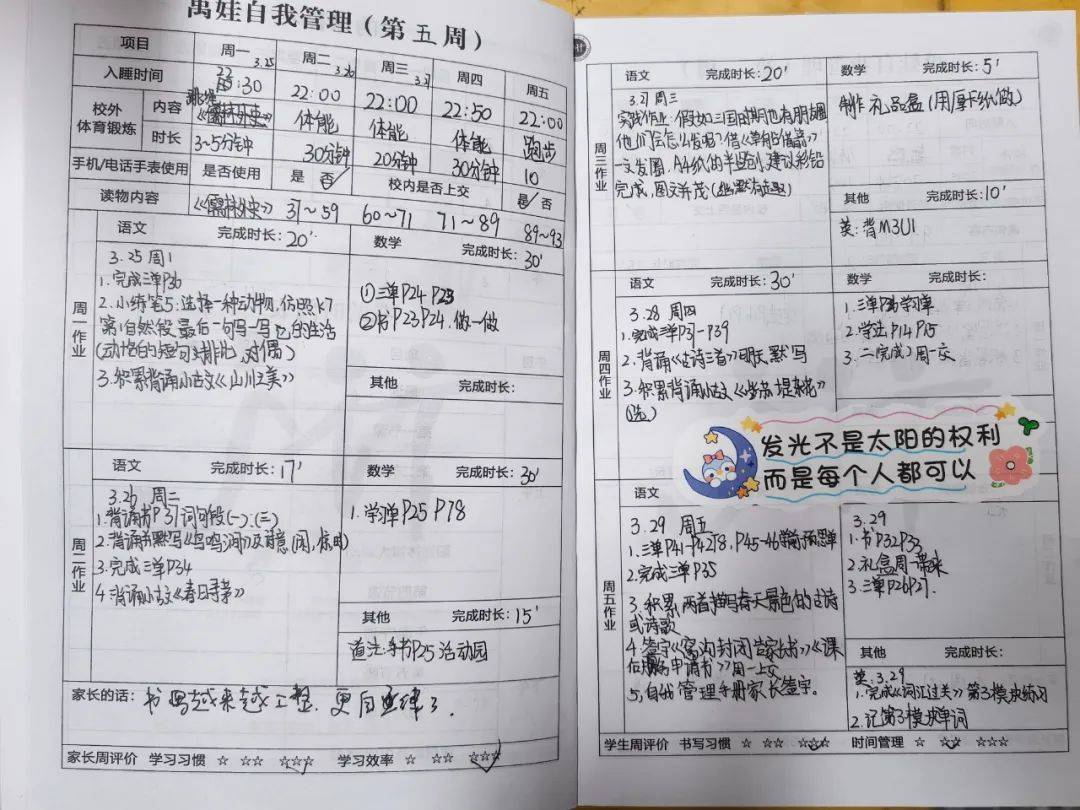 禹娃自我管理(第五周)
项目 周一 3.25 周二 3.26 周三 3.27 周四 周五
入睡时间 22:30 22:00 22:00 22:50 22:00
校外体育锻炼 内容 跳绳 体能 体能 体能 跑步
时长 3~5分钟 30分钟 20分钟 30分钟 10
手机/电话手表使用 是否使用 是 否 校内是否上交 是/否
读物内容 《儒林外史》 37~59 60~71 71~89 89~93
周一作业
语文 完成时长:20'
3.25 周1
1.完成三单P36
2.小练笔5:选择一种动物,仿照K7
第1自然段最后一句写一写它的生活
(动态的短句排比,对偶)
3.积累背诵小古文《山川之美》
数学 完成时长:30'
①三单P24 P23
②书P23 P24.做一做
其他 完成时长:
周二作业
语文 完成时长:17'
3.26 周二
1.背诵书P37词句段(一).(三)
2.背诵默写《鸟鸣涧》及诗意(闲,惊)
3.完成三单P34
4.背诵小古文《春日寻芳》
数学 完成时长:30'
1.学习单P25 P78
其他 完成时长:15'
道法:书P25活动园
家长的话: 书写越来越工整,更自律了.
家长周评价 学习习惯 ☆ ☆☆ ☆☆☆ 学习效率 ☆ ☆☆ ☆☆☆
周三作业
语文 完成时长:20'
3.27 周三
实践作业:假如三国时期也有朋友圈
他们会怎么发呢?借《草船借箭》
一文发圈,A4纸的半竖创,建议彩铅
完成,图文并茂(幽默有趣)
数学 完成时长:5'
制作礼品盒(用厚卡纸做)
其他 完成时长:10'
英:背M3U1
周四作业
语文 完成时长:30'
3.28 周四
1.完成三单P37-P39
2.背诵《古诗三首》明天默写
3.积累背诵小古文
(选)
数学 完成时长:
1.三单P36学习单
2.学法P14 P15
3.二完成周一交
发光不是太阳的权利
而是每个人都可以
周五作业
语文
3.29 周五
1.三单P41-P42 P45-46预习单
2.完成三单P35
3.积累两首描写春天景色的古诗
或诗歌
4.签字《家书》《课
申请书》周一上交
5,自我管理手册家长签字.
3.29
1.书P32 P33
2.礼盒周一带来
3.三单P26 P27.
其他 完成时长:
英:3.29
1.完成《词汇过关》第3模块练习
2.记第3模块单词
学生周评价 书写习惯 ☆ ☆☆ ☆☆☆ 时间管理 ☆ ☆☆ ☆☆☆